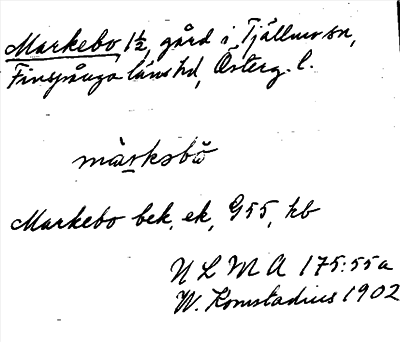 Markebo 1½, gård i Tjällmo sn,
Finspånga läns hd, Österg. l.
màrksbō
Markebo bek, ek, G55, hb
N L M A 175:55a
W. Komstadius 1902